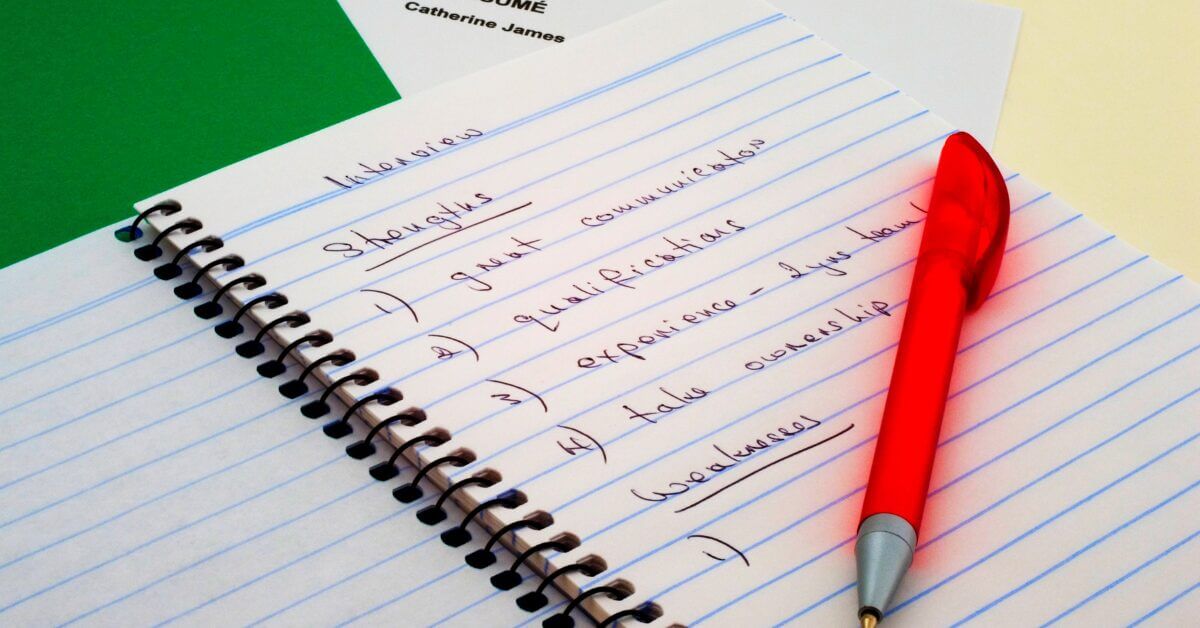 SUMÉ
Catherine James
Interview
Strengths
1) great communication
2) qualifications
3) experience - 2yrs team
4) take ownership
Weaknesses
1)